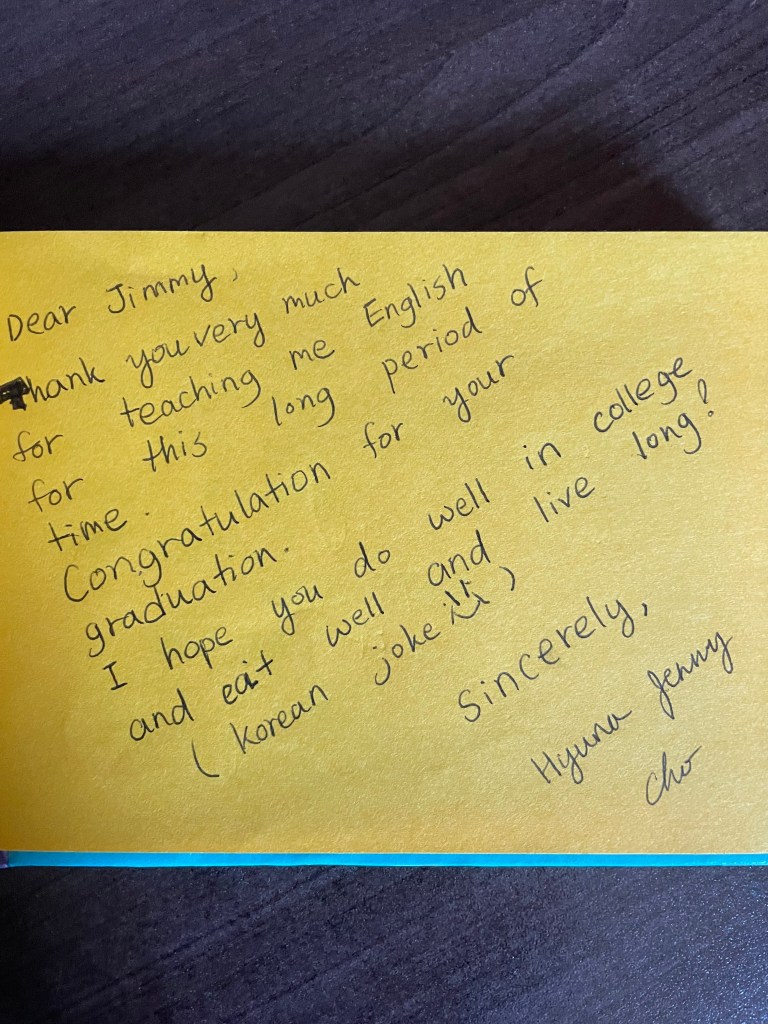 Dear Jimmy,
Thank you very much
for teaching me English
for this long period of
time.
Congratulation for your
graduation.
I hope you do well in college
and eat well and live long!
(Korean joke )
Sincerely,
Hyuna Jenny
Cho